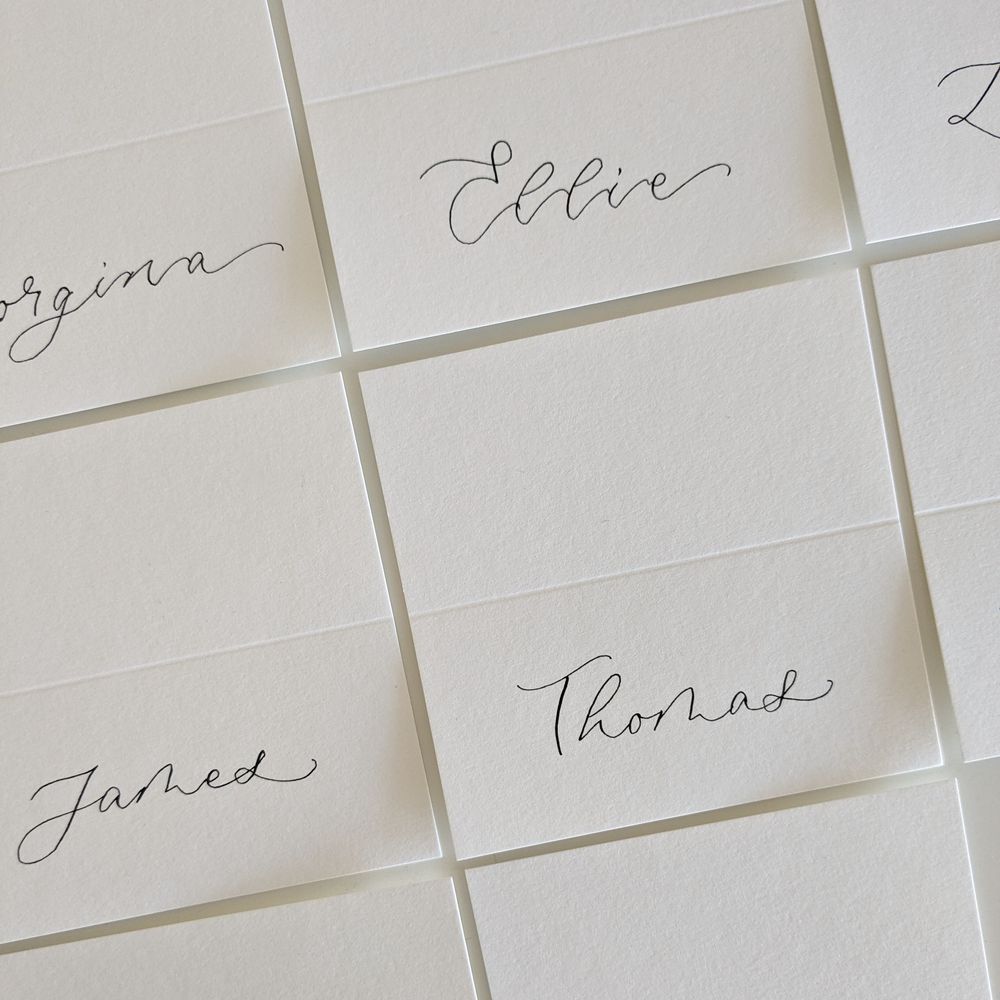 Ellie
orgina
Thomas
James